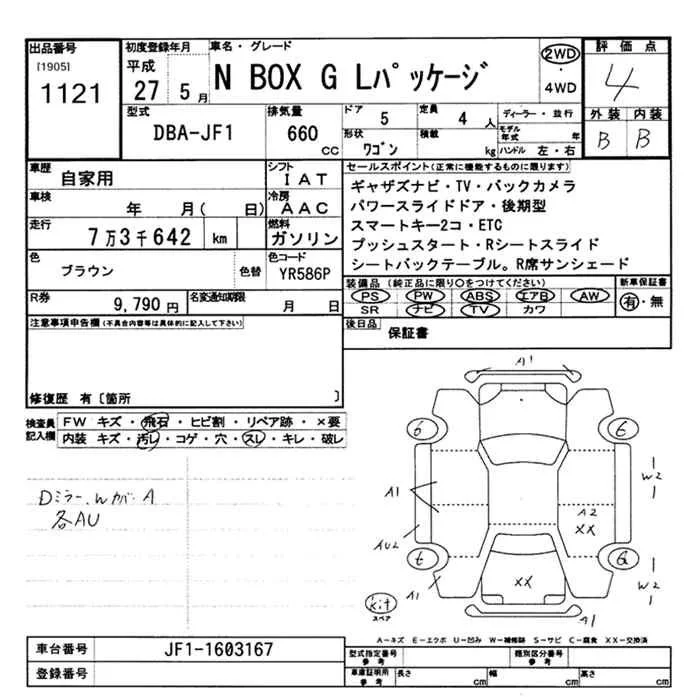 出品番号
[1905]
1121
初度登録年月
平成
27 5月
車名・グレード
N BOX G Lパッケージ
2WD
・
4WD
評価点
4
外装 内装
B B
型式
DBA-JF1
排気量
660
cc
ドア
5
定員
4 人
形状
ワゴン
積載
kg
ディーラー・並行
モデル年式 年
ハンドル 左・右
車歴
自家用
シフト
IAT
車検
年 月( 日)
冷房
AAC
走行
7万3千642 km
燃料
ガソリン
色
ブラウン
色替
色コード
YR586P
R券
9,790円
名変通知期限
月 日
セールスポイント(正常に機能するものに限ります)
ギャザズナビ・TV・バックカメラ
パワースライドドア・後期型
スマートキー2コ・ETC
プッシュスタート・Rシートスライド
シートバックテーブル。R席サンシェード
装備品(純正品に限り○をつけてください)
PS PW ABS エアB AW
SR ナビ TV カワ
新車保証書
有・無
後日品
保証書
注意事項申告欄(不具合内容等は具体的に記入して下さい)
修復歴 有〔箇所 〕
検査員記入欄
FW キズ・飛石・ヒビ割・リペア跡・×要
内装 キズ・汚レ・コゲ・穴・スレ・キレ・破レ
Dミラー、Wカバー A
各AU
A1
6
6
A1
W2
A2
XX
AU2
t
G
W2
XX
A1
A1
kit
スペア
A-キズ E-エクボ U-凹み W-補修跡 S-サビ C-腐食 XX-交換済
車台番号
JF1-1603167
登録番号
型式指定番号
参考
類別区分番号
参考
車庫証明用
参考
長さ cm
幅 cm
高さ cm